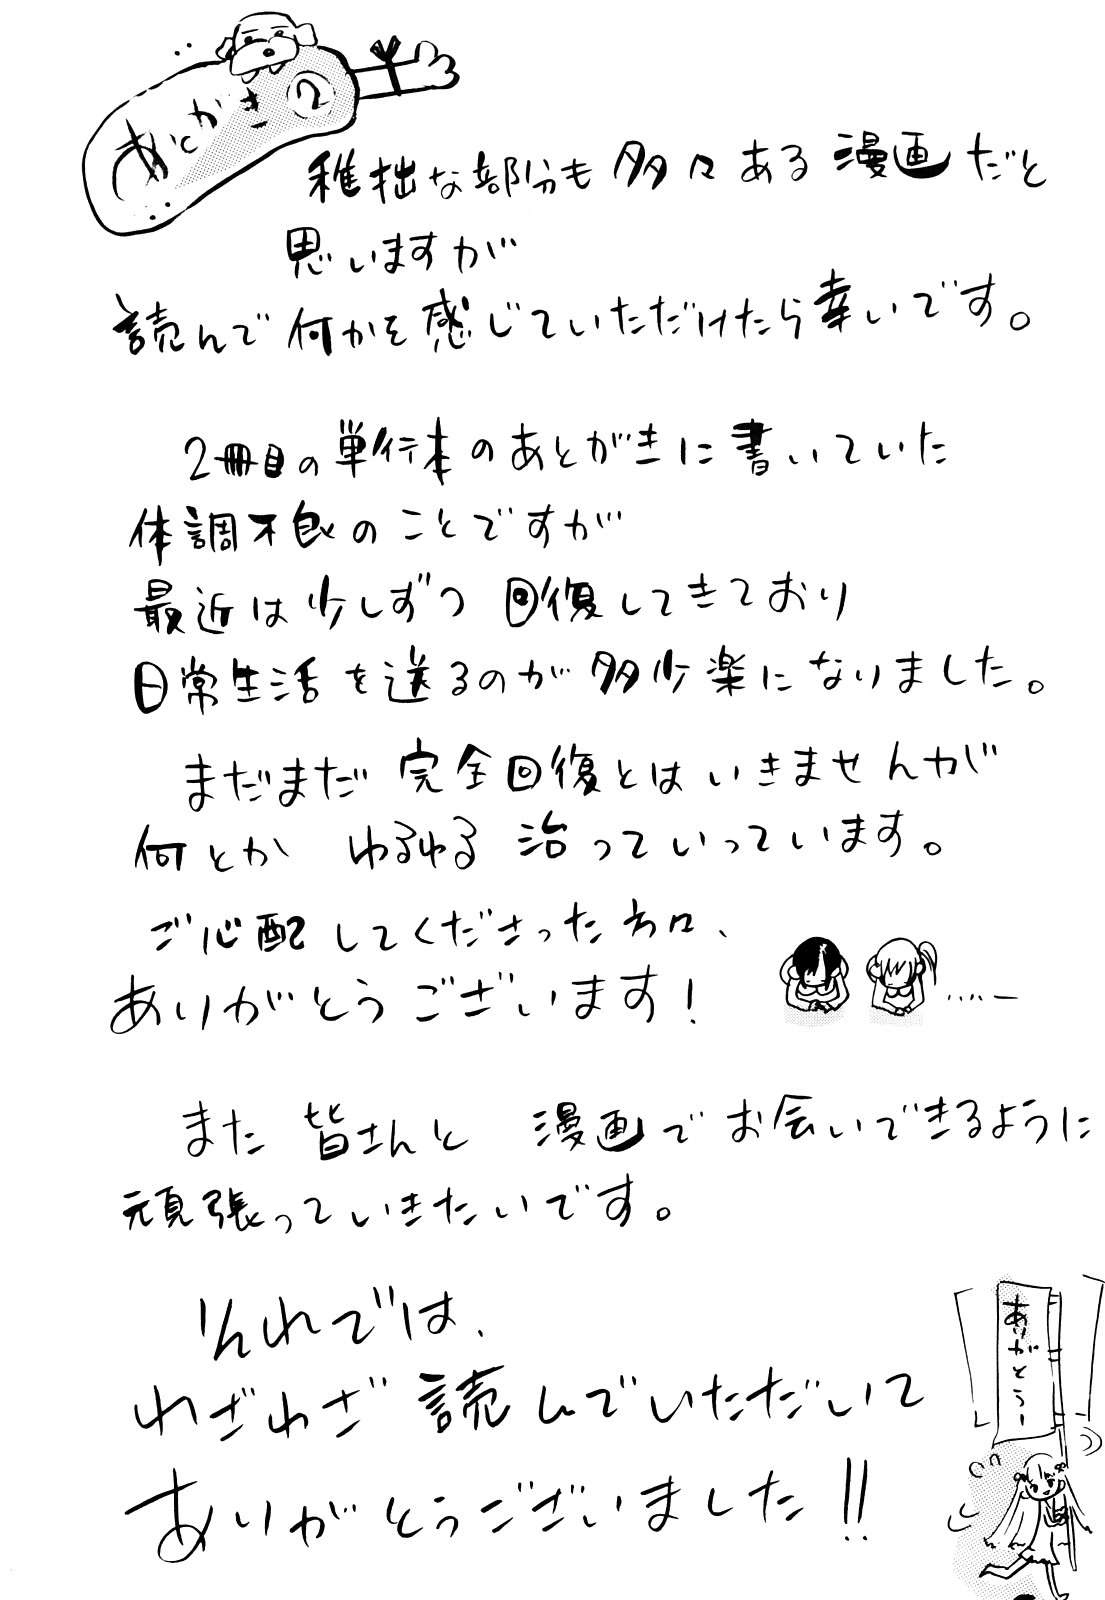 あとがき2
稚拙な部分も多々ある漫画だと
思いますが
読んで何かを感じていただけたら幸いです。
2冊目の単行本のあとがきに書いていた
体調不良のことですが
最近は少しずつ回復してきており
日常生活を送るのが多少楽になりました。
まだまだ完全回復とはいきませんが
何とか ゆるゆる 治っていっています。
ご心配してくださった方々、
ありがとうございます!
また 皆さんと 漫画でお会いできるように
頑張っていきたいです。
それでは、
わざわざ 読んでいただいて
ありがとうございました!!
ありがとうー